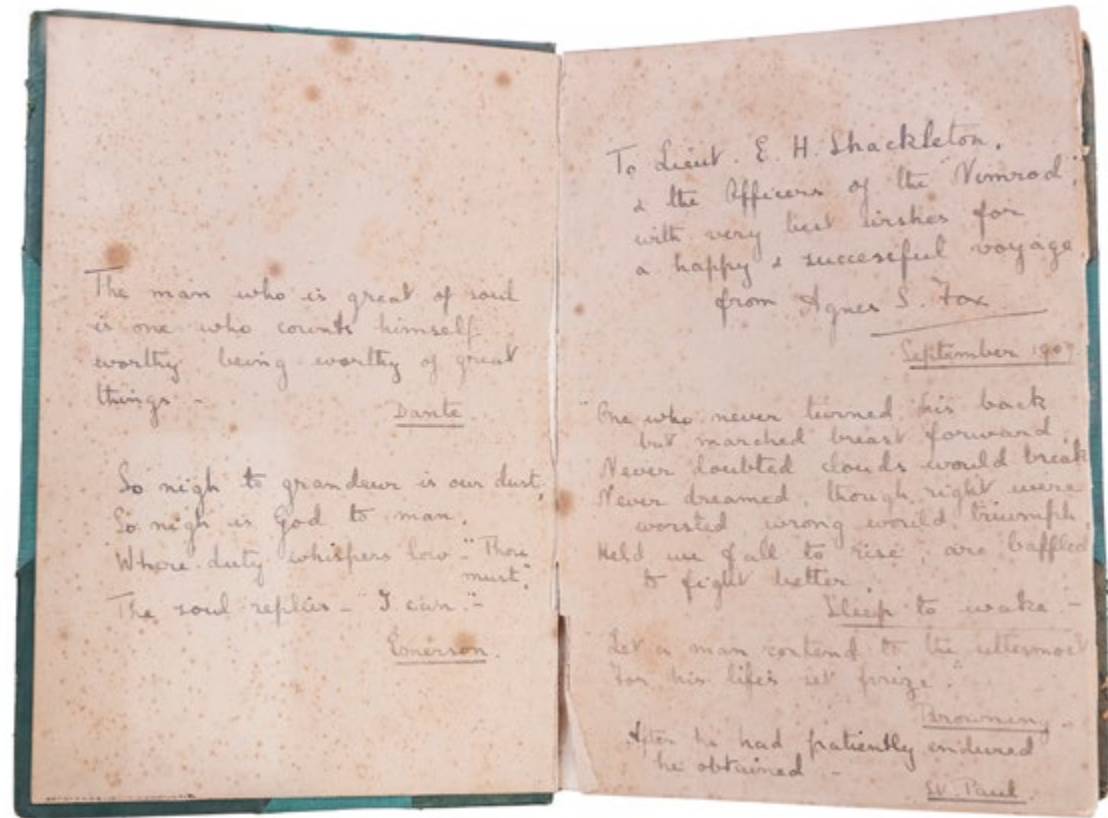 The man who is great of soul
is one who counts himself
worthy being worthy of great
things -
Dante
So nigh to grandeur is our dust,
So nigh is God to man,
Where duty whispers low - "Thou
must",
The soul replies - "I can." -
Emerson.
To Lieut. E. H. Shackleton,
& the Officers of the "Nimrod",
with very best wishes for
a happy & successful voyage
from Agnes S. Fox
September 1907
"One who never turned his back
but marched breast forward,
Never doubted clouds would break
Never dreamed, though right were
worsted wrong would triumph,
Held we fall to rise, are baffled
to fight better
Sleep to wake. -
Let a man contend to the uttermost
For his life's set prize."
Browning -
After he had patiently endured
he obtained -
St. Paul.